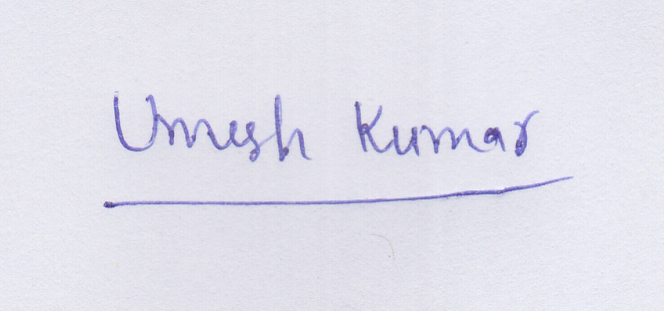 Umesh Kumar